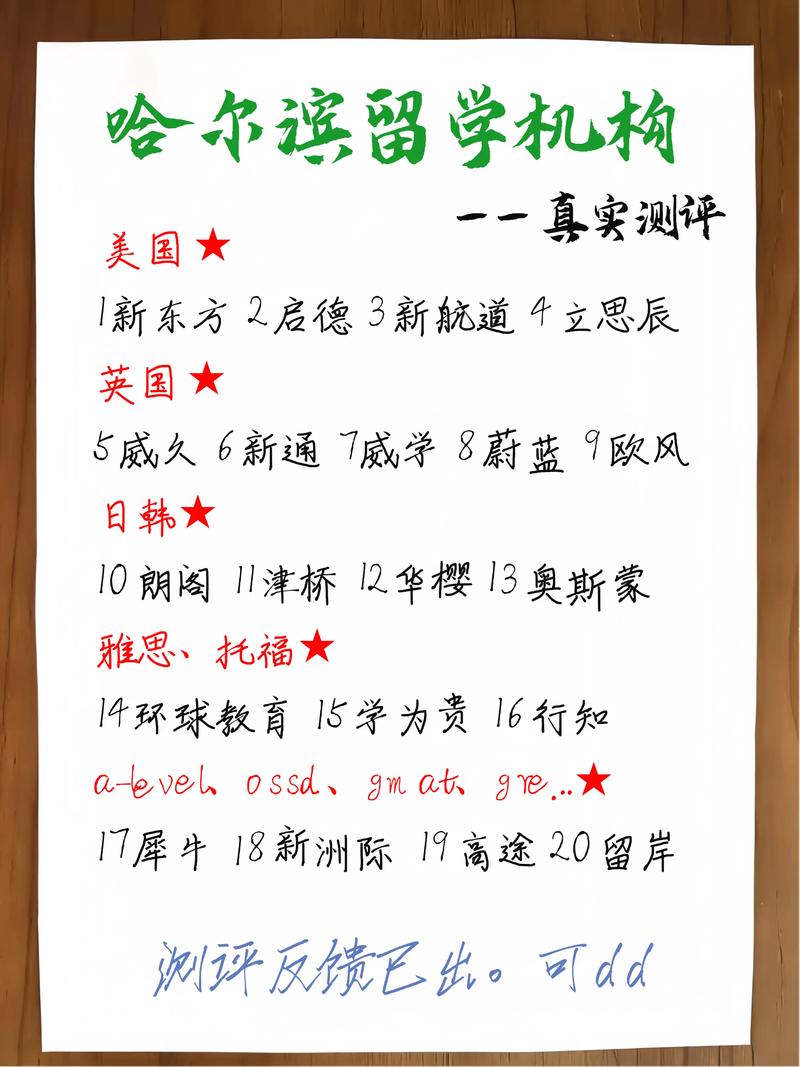 哈尔滨留学机构
——真实测评
美国★
1新东方 2启德 3新航道 4立思辰
英国★
5威久 6新通 7威学 8蔚蓝 9欧风
日韩★
10朗阁 11津桥 12华樱 13奥斯蒙
雅思、托福★
14环球教育 15学为贵 16行知
a-level、ossd、gmat、gre...★
17犀牛 18新洲际 19高途 20留岸
测评反馈已出。可dd